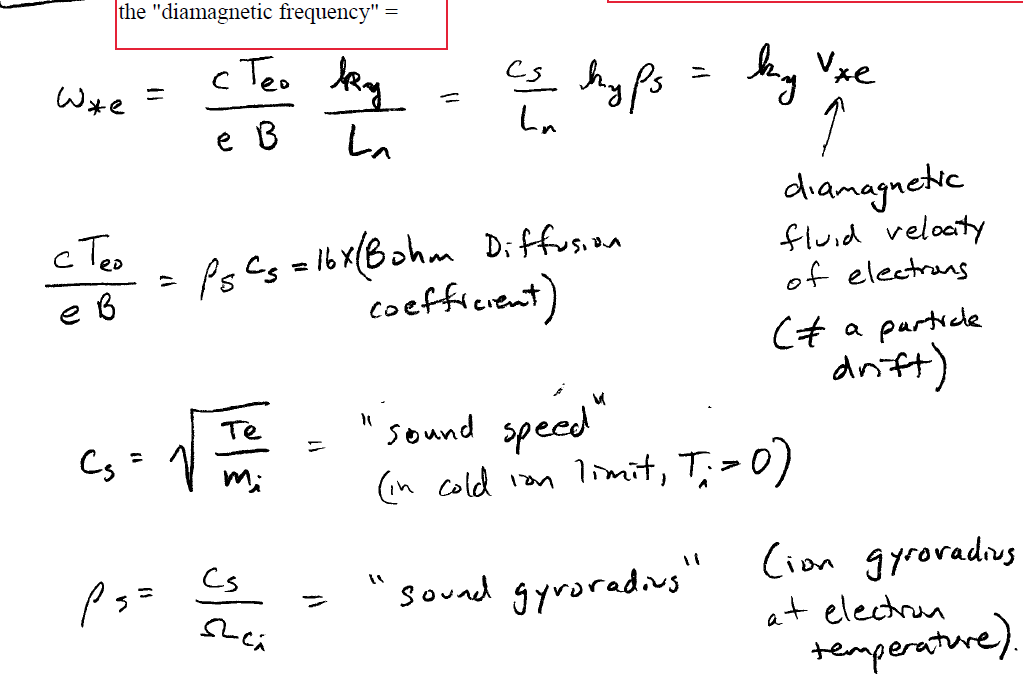 the "diamagnetic frequency" =
ω*e = c Te0 / e B ky / Ln = cs / Ln ky ρs = ky V*e
diamagnetic
fluid velocity
of electrons
(≠ a particle
drift)
c Te0 / e B = ρs cs = 16×(Bohm Diffusion
coefficient)
cs = √(Te / mi) = "sound speed"
(in cold ion limit, Ti → 0)
ρs = cs / Ωci = "sound gyroradius" (ion gyroradius
at electron
temperature).